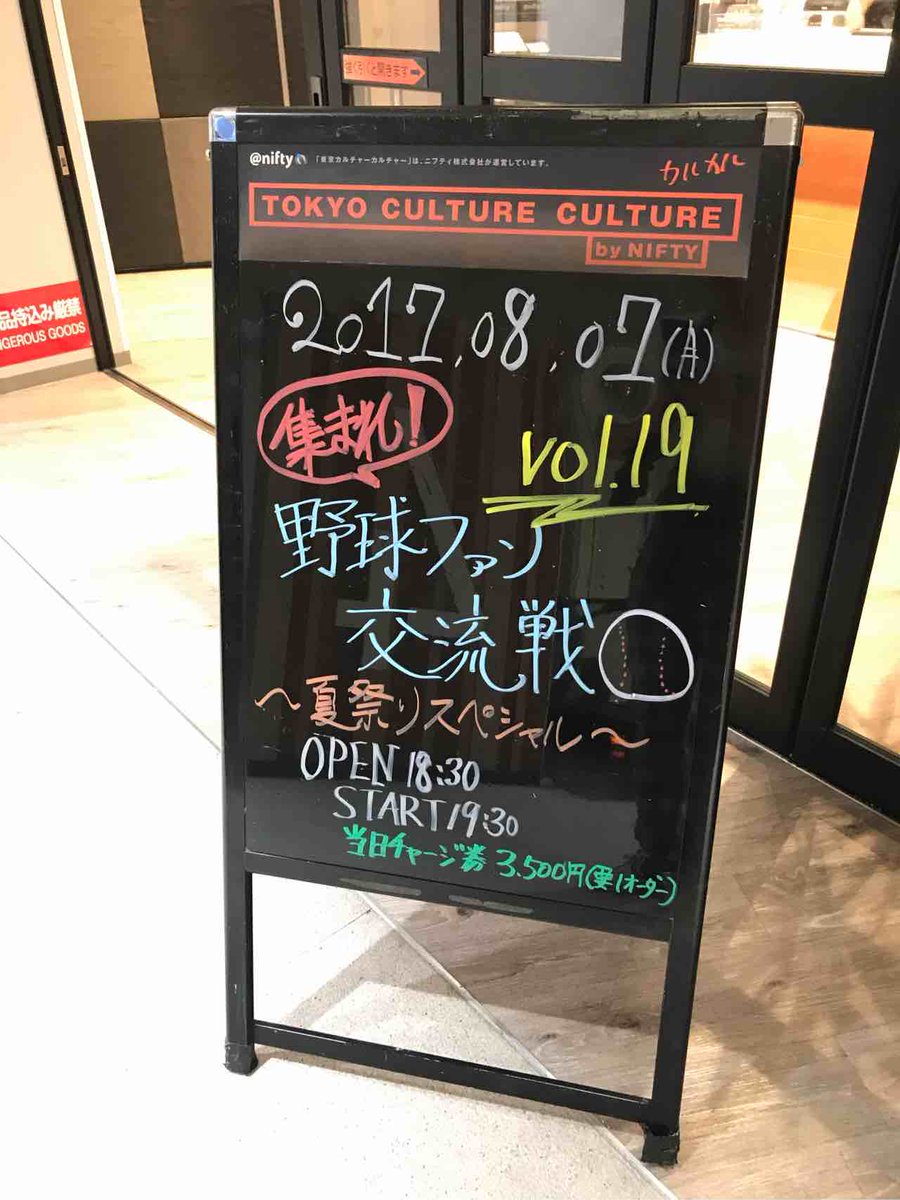 強く引くと開きます
@nifty 「東京カルチャーカルチャー」は、ニフティ株式会社が運営しています。
カルカル
TOKYO CULTURE CULTURE
by NIFTY
2017.08.07(月)
集まれ!
vol.19
野球ファン
交流戦
～夏祭りスペシャル～
OPEN 18:30
START 19:30
当日チャージ券 3.500円(要1オーダー)
品持込み厳禁
NGEROUS GOODS